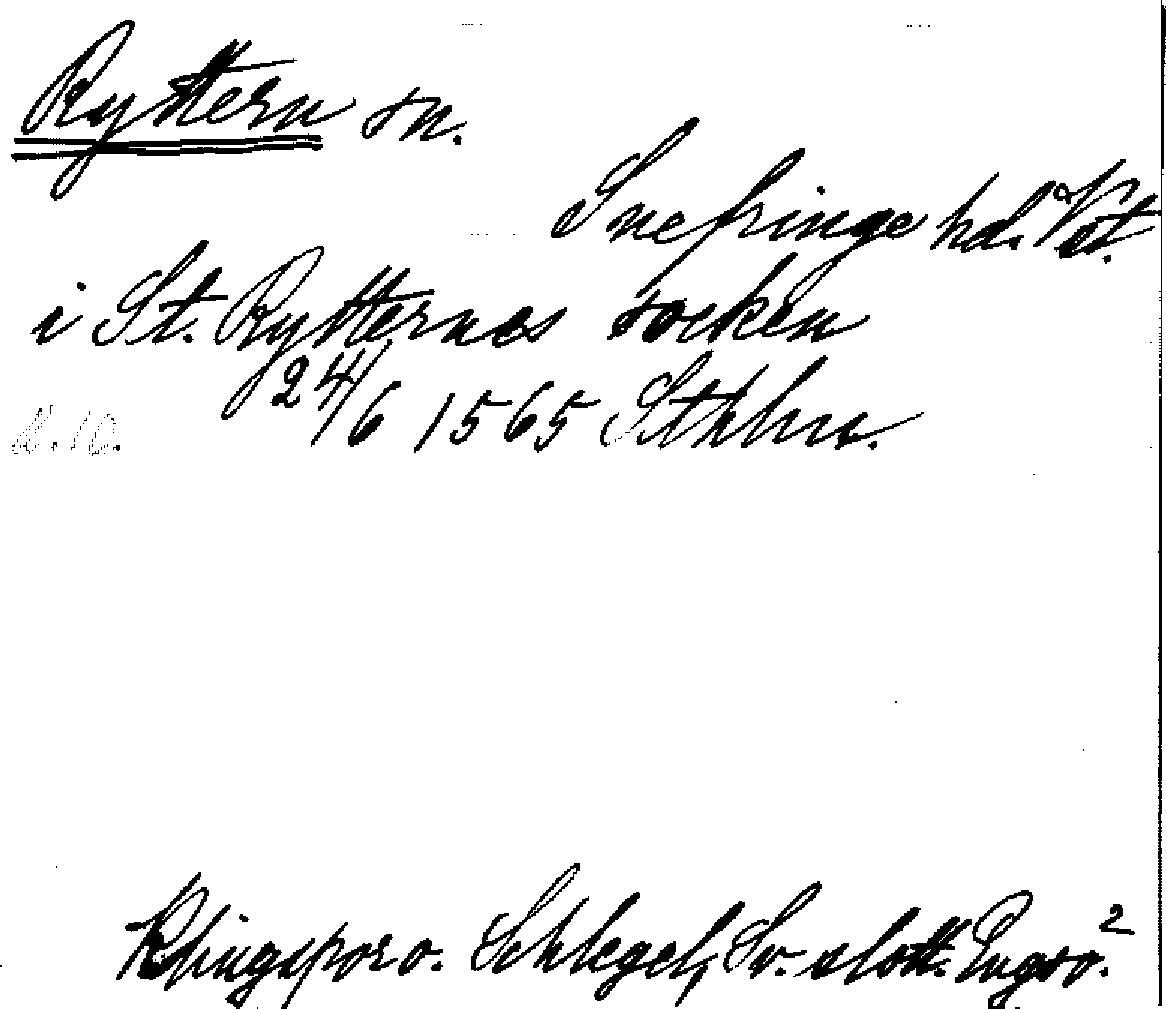 Ryttern sn.
Snefringe hd. Vst.
i St. Rytternes socken
24/6 1565 Sthlm.
Klingspor o. Schlegel, Sv. slott. Engsö.²